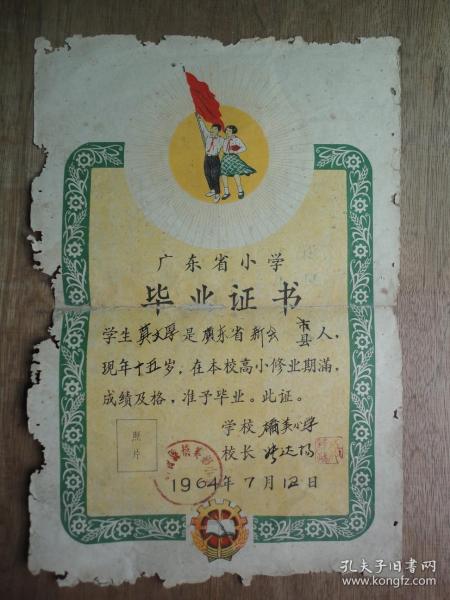 广东省小学
毕业证书
学生莫文厚是广东省新会市县人，
现年十五岁，在本校高小修业期满，
成绩及格，准予毕业。此证。
学校 小学
校长
照片
1964年7月12日
孔夫子旧书网
www.kongfz.com